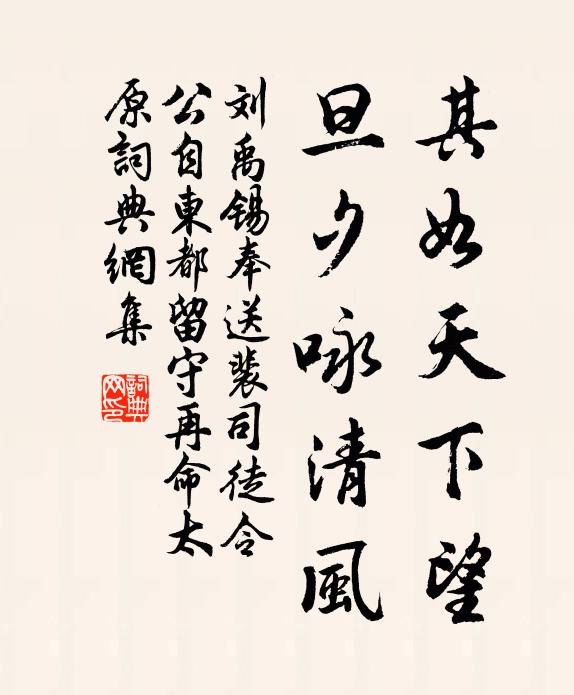 其如天下望
旦夕咏清風
刘禹錫奉送裴司徒令
公自東都留守再命太
原詞典網集
詞典网印